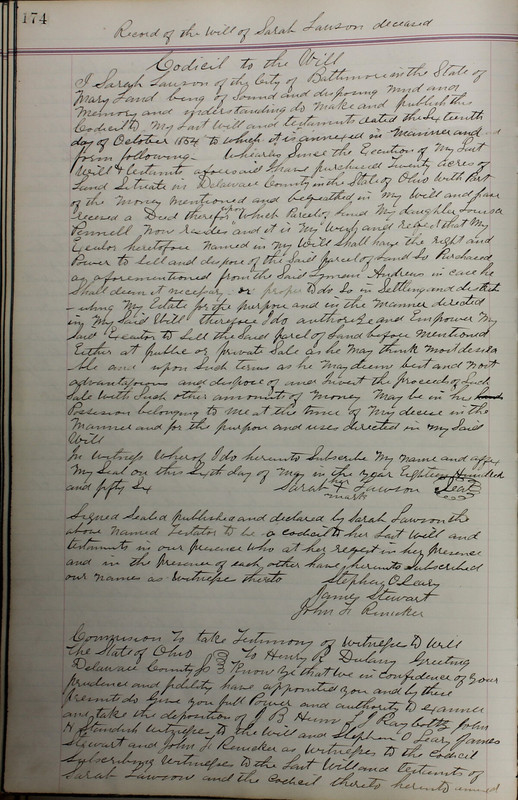 174
Record of the Will of Sarah Lawson deceased
Codicil to the Will
I Sarah Lawson of the City of Baltimore in the State of
Mary Land being of Sound and disposing mind and
Memory and understanding do make and publish this
Codicil to My Last Will and testament dated the Sixteenth
day of October 1854 to which it is annexed in Manner and
form following Whereas Since the Execution of My Last
Will & testament aforesaid I have purchased Twenty acres of
Land Situate in Delaware County in the State of Ohio with Part
of the Money mentioned and bequeathed in My Will and have
received a Deed therefor upon Which Parcel of Land My daughter Louisa
Pennell Now resides and it is My Wish and request that My
Executor heretofore Named in My Will Shall have the right and
Power to Sell and dispose of the Said parcel of Land So Purchased
as aforementioned from the Said Lyman Andrews in case he
Shall deem it necessary or proper to do So in Settling and distrib
-uting My Estate for the purpose and in the Manner directed
in My Said Will therefore I do authorize and Empower My
Said Executor to Sell the Said Parcel of Land before Mentioned
Either at public or private Sale as he May think most desira
ble and upon Such terms as he May deem best and most
advantageous and dispose of and Invest the proceeds of Such
Sale with Such other amount of Money May be in his
Possession belonging to me at the time of My decease in the
Manner and for the purpose and uses directed in My Said
Will
In Witness Whereof I do hereunto Subscribe My Name and affix
My Seal on this Sixth day of May in the Year Eighteen Hundred
and fifty Six Sarah her Lawson Seal
mark
Signed Sealed published and declared by Sarah Lawson the
above Named Testator to be a codicil to her Last Will and
testament in our presence who at her request in her presence
and in the Presence of each other have hereunto Subscribed
our names as Witnesses thereto Stephen O Leary
James Stewart
John H Renecker
Commission to take Testimony of Witnesses to Will
The State of Ohio To Henry R Dulany Greeting
Delaware County SS Know Ye that we in Confidence of Your
prudence and fidelity have appointed You and by these
presents do Give you full Power and authority to examine
and take the deposition of J B Hunn J Raybolt John
H Standish Witnesses to the Will and Stephen O Leary James
Stewart and John H Renecker as Witnesses to the Codicil
Subscribing Witnesses to the Last Will and testament of
Sarah Lawson and the Codicil thereto hereunto annexed